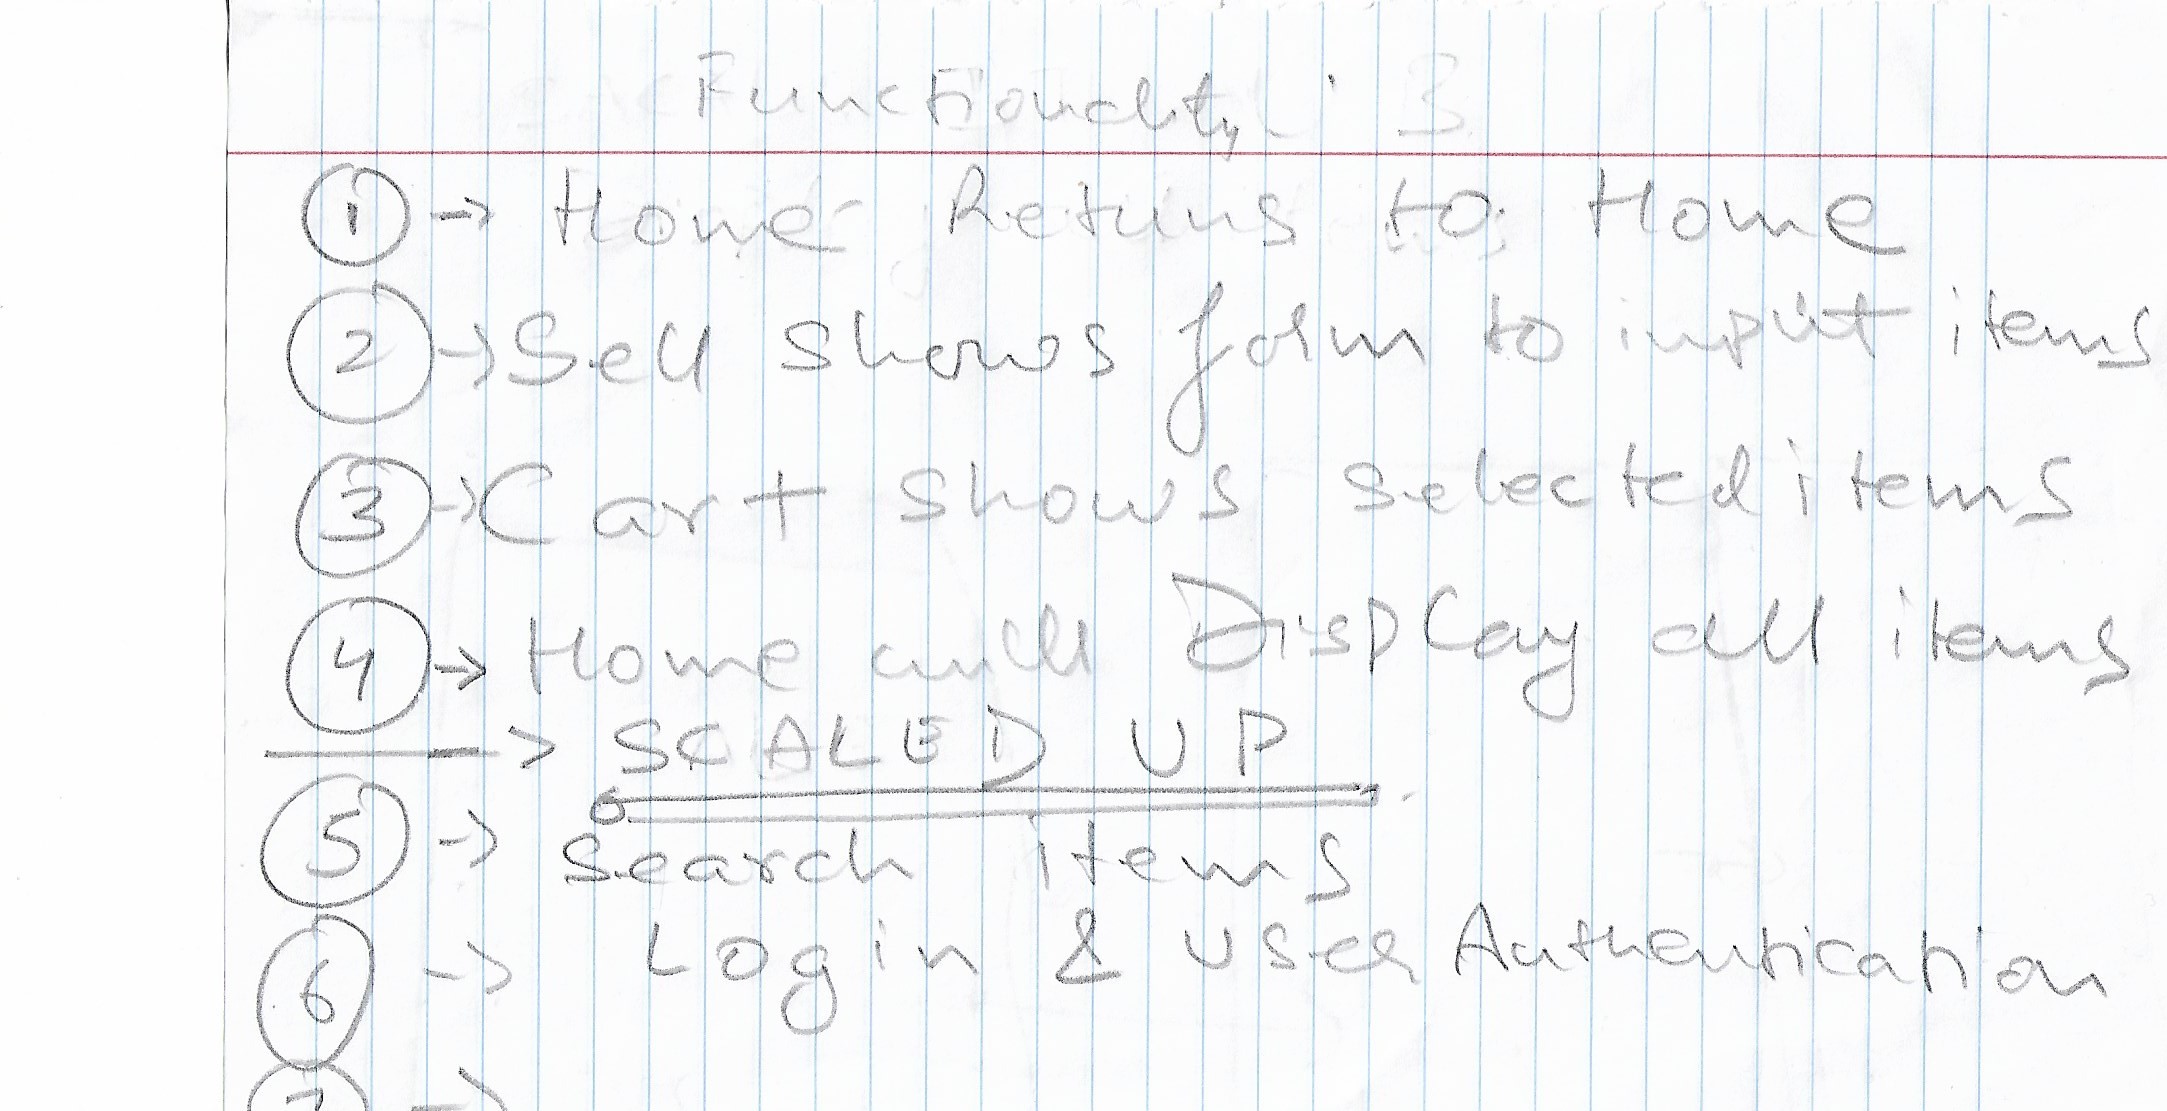 Functionality : 3
① → Home Returns to Home
② → Sell shows form to input items
③ → Cart shows selected items
④ → Home will Display all items
→ SCALED UP
⑤ → Search items
⑥ → Login & User Authentication
⑦ →